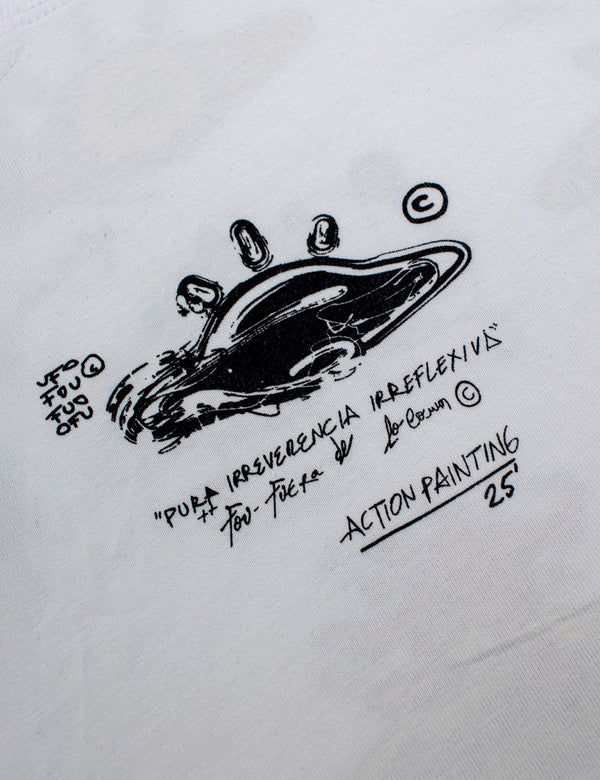 ©
UFO ©
FOU
FUO
OFU
"PURA IRREVERENCIA IRREFLEXIVA"
++ FOU- FUERA de lo Comun ©
ACTION PAINTING
25'